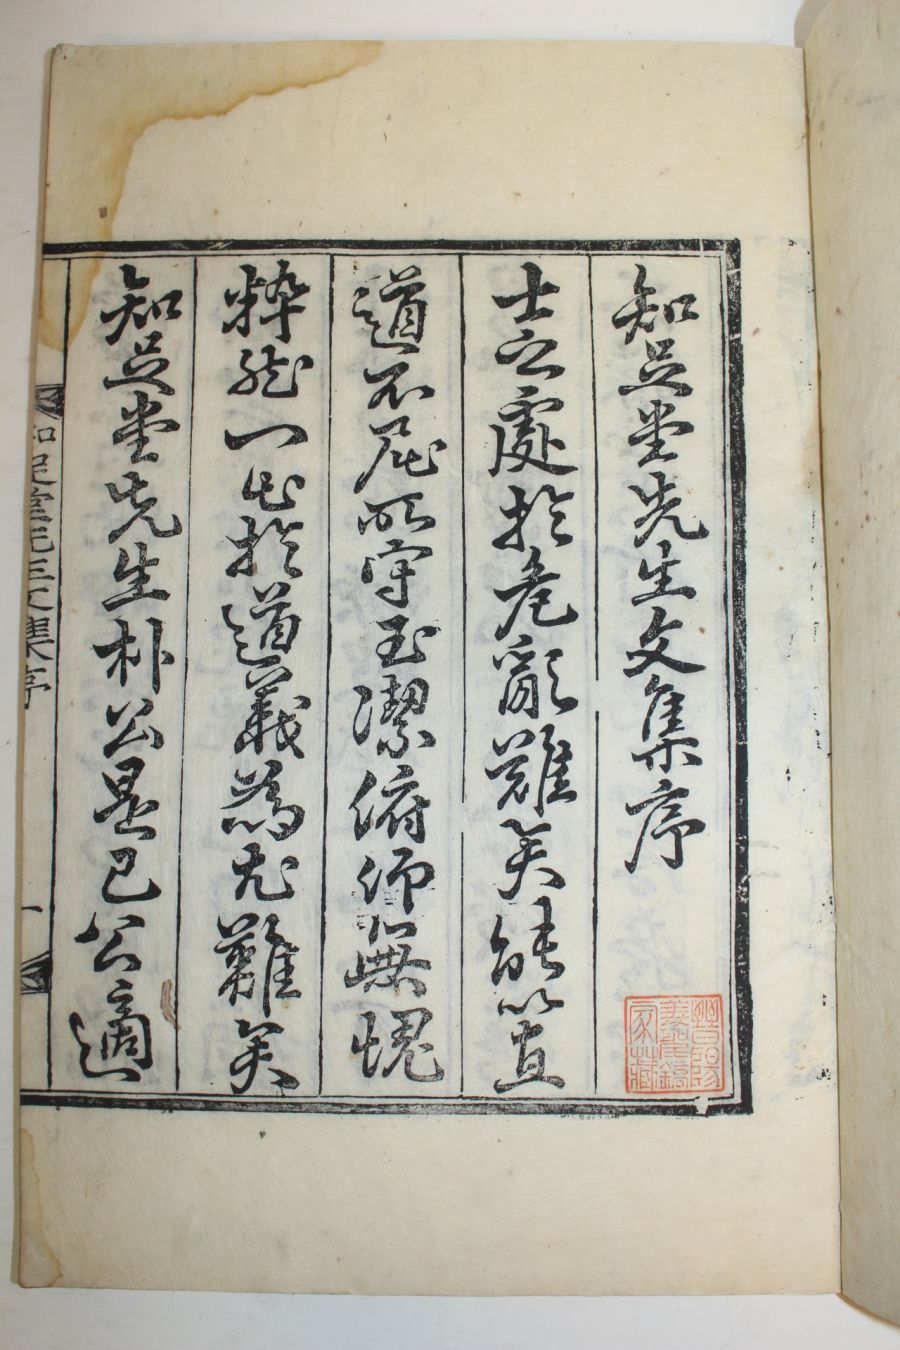 知足堂先生文集序
士之處於危亂難矣能以直
道不屈所守玉潔俯仰無愧
粹然一出於道義爲尤難矣
知足堂先生朴公是已公適
知足堂先生文集序
一
晉陽
家藏